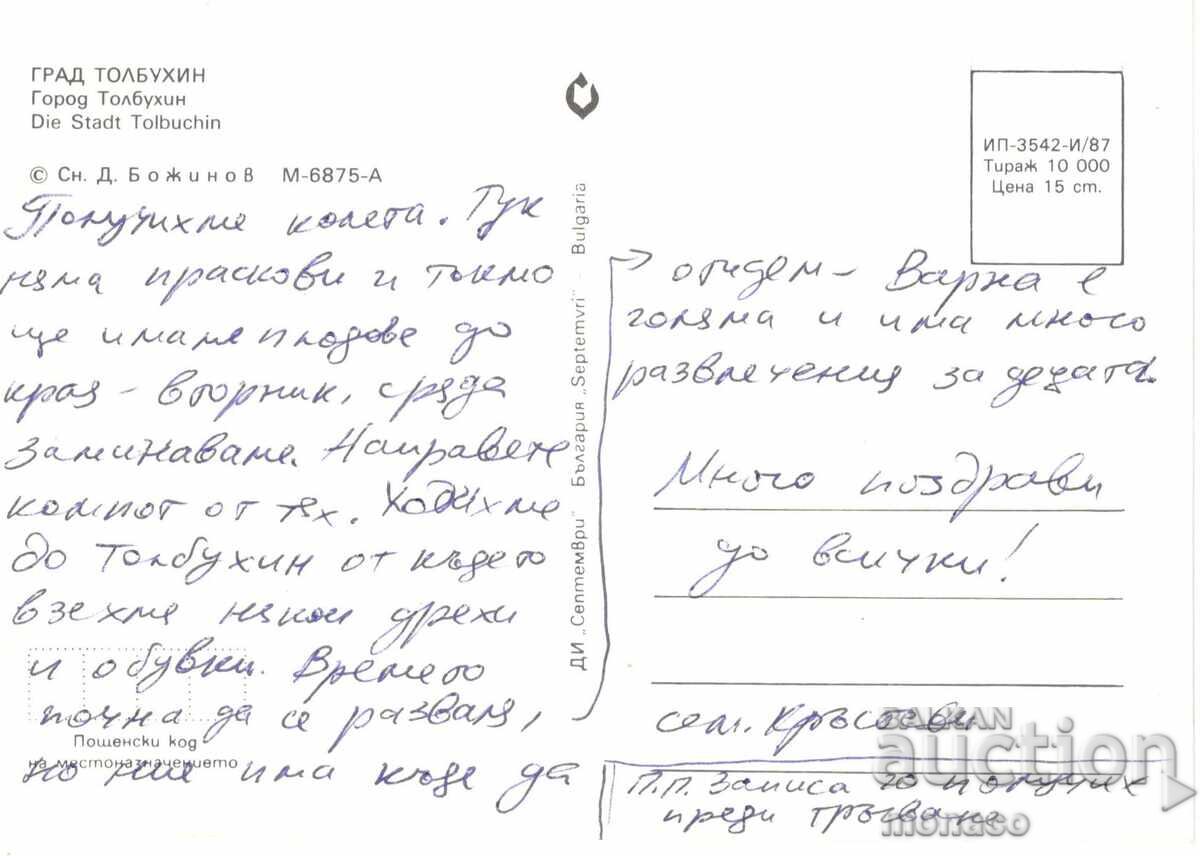 ГРАД ТОЛБУХИН
Город Толбухин
Die Stadt Tolbuchin
© Сн. Д. Божинов М-6875-А
Получихме колета. Тук
няма праскови и тъкмо
ще имаме плодове до
края – вторник, сряда
заминаваме. Направете
компот от тях. Ходихме
до Толбухин от където
взехме някои дрехи
и обувки. Времето
почна да се разваля,
но ние има къде да
Пощенски код
на местоназначението
ДИ „Септември" България „Septemvri" - Bulgaria
ИП-3542-И/87
Тираж 10 000
Цена 15 ст.
отидем – Варна е
голяма и има много
развлечения за децата.
Много поздрави
до всички!
сем. Кръстеви
П.П. Записа го получих
преди тръгване
BALKAN
auction
monaso